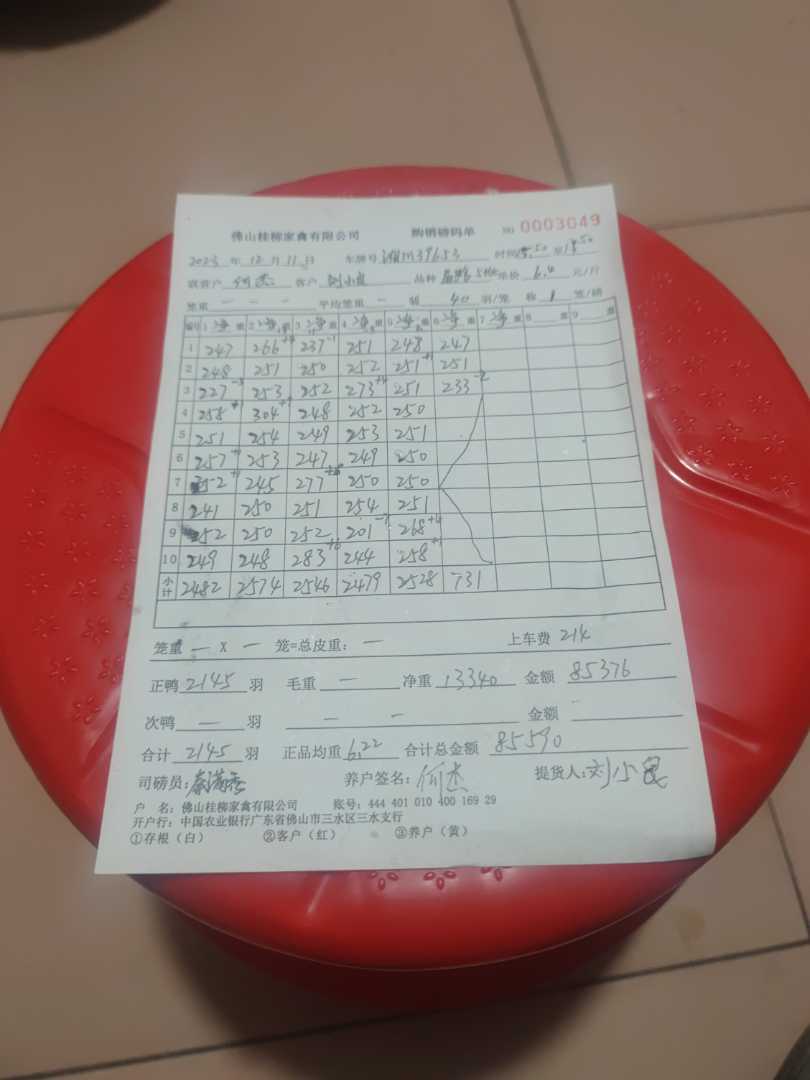 佛山桂柳家禽有限公司 购销磅码单 № 0003049
2023 年 12 月 11 日 车牌号 39653 时间 :50 至 :50
何杰 客户 刘小 品种 单价 6.4 元/斤
笼重 — — — 平均笼重 — 制 40 羽/笼 称 1 笼/磅
编号 1 净 重 2 净 重 3 净 重 4 净 重 5 净 重 6 净 重 7 净 重 8 重 9 重
1 247 266 237-1 251 248 247
2 248 251 250 252 251+1 251
3 227-3 253 252 273+4 251 233-2
4 258+1 304 248 252 250
5 251 254 249 253 251
6 257 253 247 249 250
7 252 245 277 250 250
8 241 250 251 254 251
9 252 250 252 201 268+4
10 249 248 283 244 258+1
小计 2482 2574 2546 2479 2528 731
笼重 — X — 笼=总皮重: — 上车费 214
正鸭 2145 羽 毛重 — 净重 13340 金额 85376
次鸭 — 羽 — — 金额 —
合计 2145 羽 正品均重 6.22 合计总金额 85590
司磅员: 养户签名: 何杰 提货人: 刘小
户 名: 佛山桂柳家禽有限公司 账号: 444 401 010 400 169 29
开户行: 中国农业银行广东省佛山市三水区三水支行
①存根（白） ②客户（红） ③养户（黄）